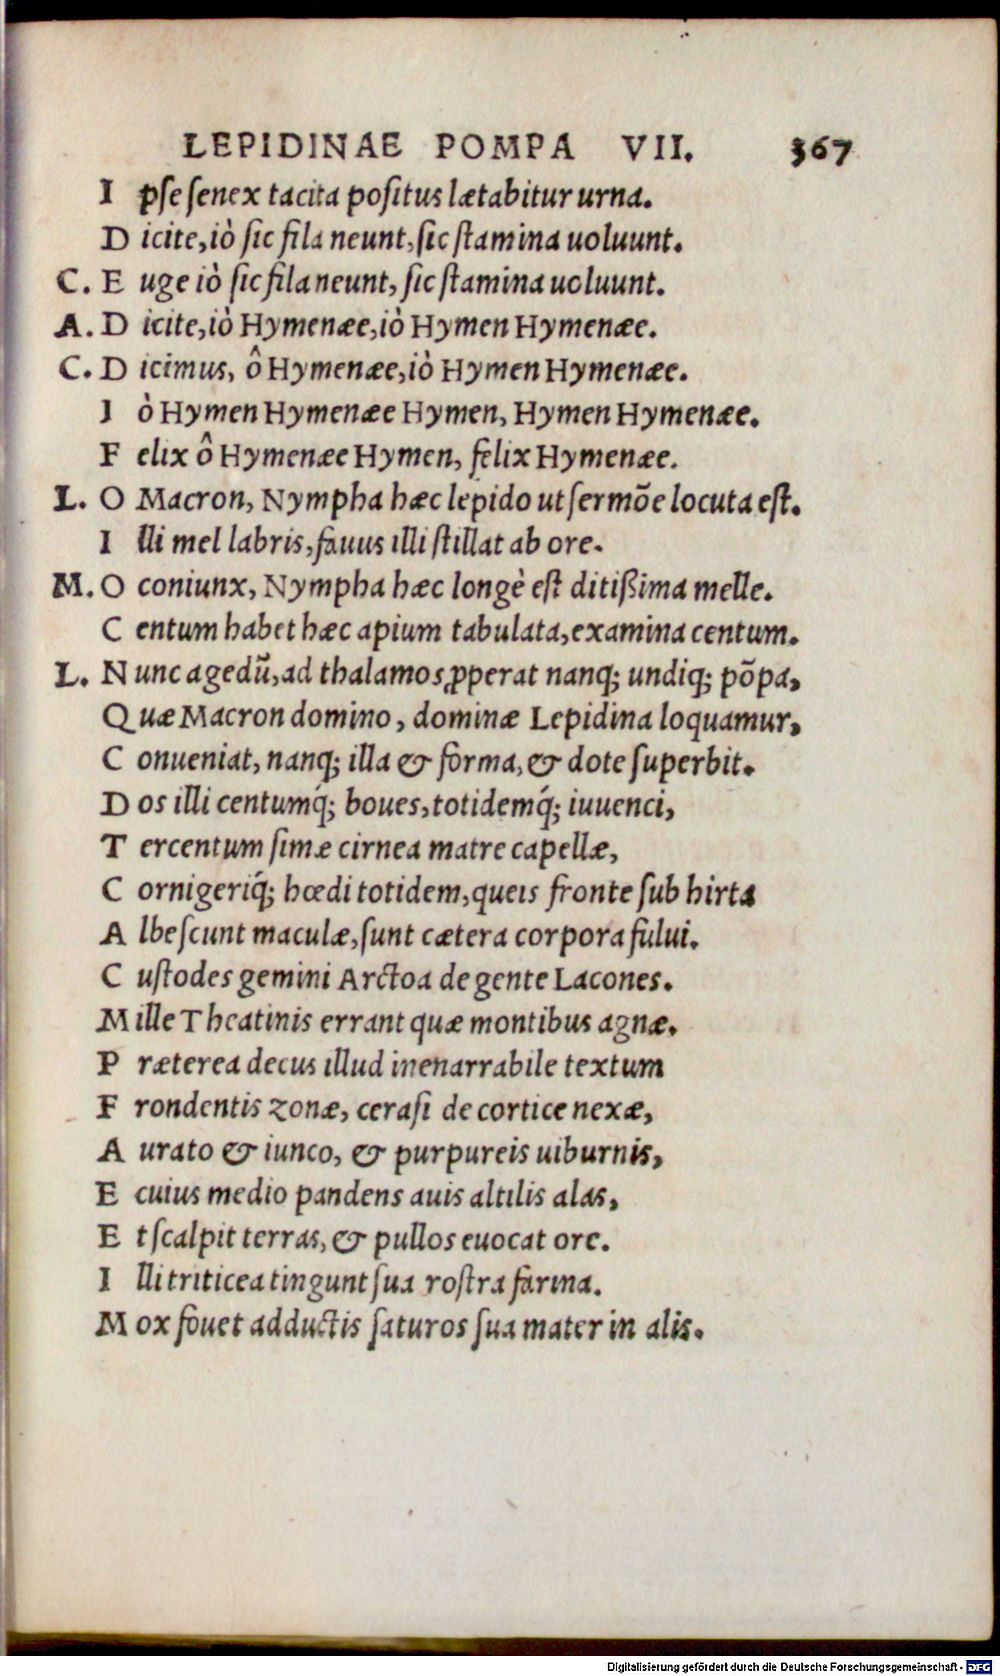 LEPIDINAE POMPA VII. 367
I pse senex tacita positus lætabitur urna.
D icite, iò sic fila neunt, sic stamina uoluunt.
C. E uge iò sic fila neunt, sic stamina uoluunt.
A. D icite, iò Hymenæe, iò Hymen Hymenæe.
C. D icimus, ô Hymenæe, iò Hymen Hymenæe.
I ò Hymen Hymenæe Hymen, Hymen Hymenæe.
F elix ô Hymenæe Hymen, felix Hymenæe.
L. O Macron, Nympha hæc lepido ut sermõe locuta est.
I lli mel labris, fauus illi stillat ab ore.
M. O coniunx, Nympha hæc longè est ditißima melle.
C entum habet hæc apium tabulata, examina centum.
L. N unc agedũ, ad thalamos ꝓperat nanq; undiq; põpa,
Q uæ Macron domino, dominæ Lepidina loquamur,
C onueniat, nanq; illa & forma, & dote superbit.
D os illi centumq́; boues, totidemq́; iuuenci,
T ercentum simæ cirnea matre capellæ,
C ornigeriq́; hœdi totidem, queis fronte sub hirta
A lbescunt maculæ, sunt cætera corpora fului.
C ustodes gemini Arctoa de gente Lacones.
M ille Theatinis errant quæ montibus agnæ.
P ræterea decus illud inenarrabile textum
F rondentis zonæ, cerasi de cortice nexæ,
A urato & iunco, & purpureis uiburnis,
E cuius medio pandens auis altilis alas,
E t scalpit terras, & pullos euocat ore.
I lli triticea tingunt sua rostra farina.
M ox fouet adductis saturos sua mater in alis.
Digitalisierung gefördert durch die Deutsche Forschungsgemeinschaft - DFG